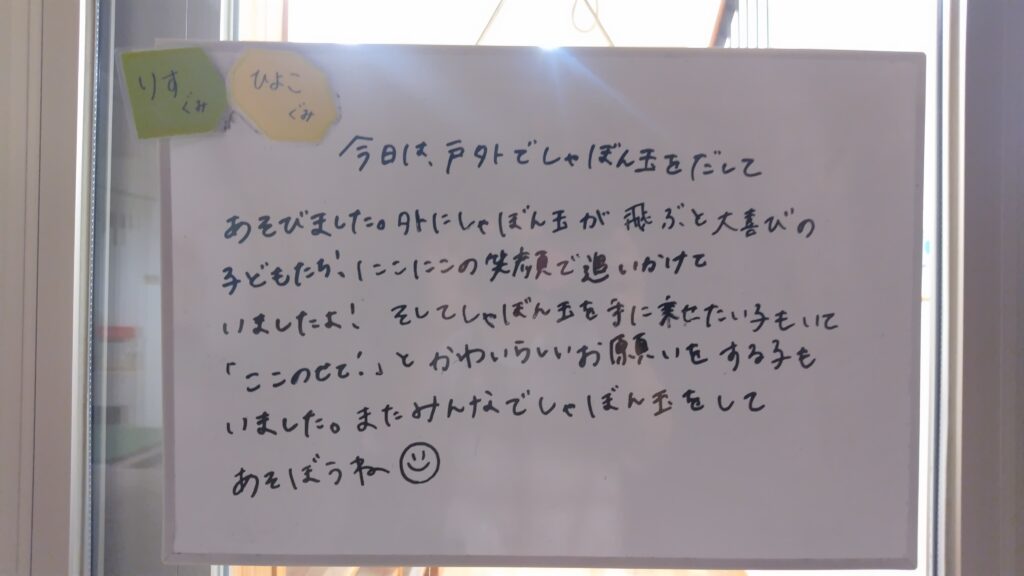 りす
ぐみ
ひよこ
ぐみ
今日は、戸外でしゃぼん玉をだして
あそびました。外にしゃぼん玉が飛ぶと大喜びの
子どもたち!にこにこの笑顔で追いかけて
いましたよ! そしてしゃぼん玉を手に乗せたい子もいて
「ここのせて!」とかわいらしいお願いをする子も
いました。またみんなでしゃぼん玉をして
あそぼうね